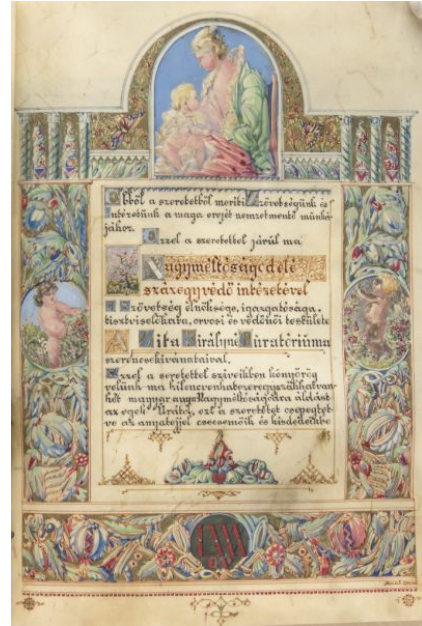 Ebből a szeretetből meríti Szövetségünk és
Intézetünk a maga erejét nemzetmentő munká-
jához.
Ezzel a szeretettel járul ma
Nagyméltóságod elé
száregyvédő intézetével
a Szövetség elnöksége, igazgatósága,
tisztviselőkara, orvosi és védőnői testülete
A Zita Királyné Kuratóriuma
szerencsekívánataival.
Ezzel a szeretettel szíveikben könyörög
velünk ma kilencvenhatezeregyszázhatvan-
hét magyar anya Nagyméltóságodra áldást
az egek Urától, ezt a szeretetet csepegtet-
ve az anyatejjel csecsemőik és kisdedeikbe